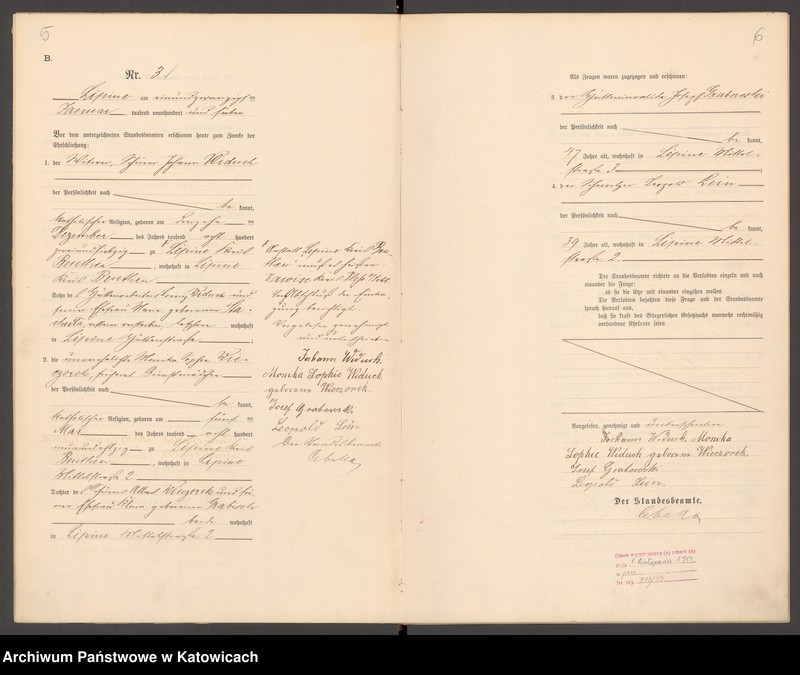 5
B.
Nr. 3
Lipine am einundzwanzigsten
Januar tausend neunhundert und sieben
Vor dem unterzeichneten Standesbeamten erschienen heute zum Zwecke der
Eheschließung:
1. der Witwer, Johann Widuch
der Persönlichkeit nach
be kannt,
katholischer Religion, geboren am
Dezember des Jahres tausend acht hundert
zweiundsiebzig zu Lipine Kreis
Beuthen, wohnhaft in Lipine
Kreis Beuthen
Sohn des Hüttenarbeiters Widuch und
seiner Ehefrau geborenen
wohnhaft
in Lipine ;
2. die unverehelichte Monika Sophie Wie-
czorek, Dienstmädchen
der Persönlichkeit nach
be kannt,
katholischer Religion, geboren am fünf ten
Mai des Jahres tausend acht hundert
neunundachtzig zu Lipine Kreis
Beuthen, wohnhaft in Lipine
Mittelstraße 2
Tochter des Albert Wieczorek und sei-
ner Ehefrau geborenen
beide wohnhaft
in Lipine Mittelstraße 2
Anstatt Lipine Kreis Beu-
then muß es heißen
Kreis Pleß
Vorgelesen genehmigt
und unterschrieben
Johann Widuch.
Monika Sophie Widuch
geborene Wieczorek.
Josef Grabowski
Leopold Lein
Der Standesbeamte
6
Als Zeugen waren zugezogen und erschienen:
3. der Hütteninvalide Josef Grabowski
der Persönlichkeit nach
be kannt,
47 Jahre alt, wohnhaft in Lipine Mittel-
straße ;
4. der Leopold Lein
der Persönlichkeit nach
be kannt,
39 Jahre alt, wohnhaft in Lipine Mittel-
straße 2.
Der Standesbeamte richtete an die Verlobten einzeln und nach
einander die Frage:
ob sie die Ehe mit einander eingehen wollen.
Die Verlobten bejahten diese Frage und der Standesbeamte
sprach hierauf aus,
daß sie kraft des Bürgerlichen Gesetzbuchs nunmehr rechtmäßig
verbundene Eheleute seien.
Vorgelesen, genehmigt und unterschrieben
Johann Widuch. Monika
Sophie Widuch geborene Wieczorek.
Josef Grabowski
Leopold Lein.
Der Standesbeamte.
Obok wymieniony(a) zmarł(a)
dnia listopada
w
Nr rej.
Archiwum Państwowe w Katowicach